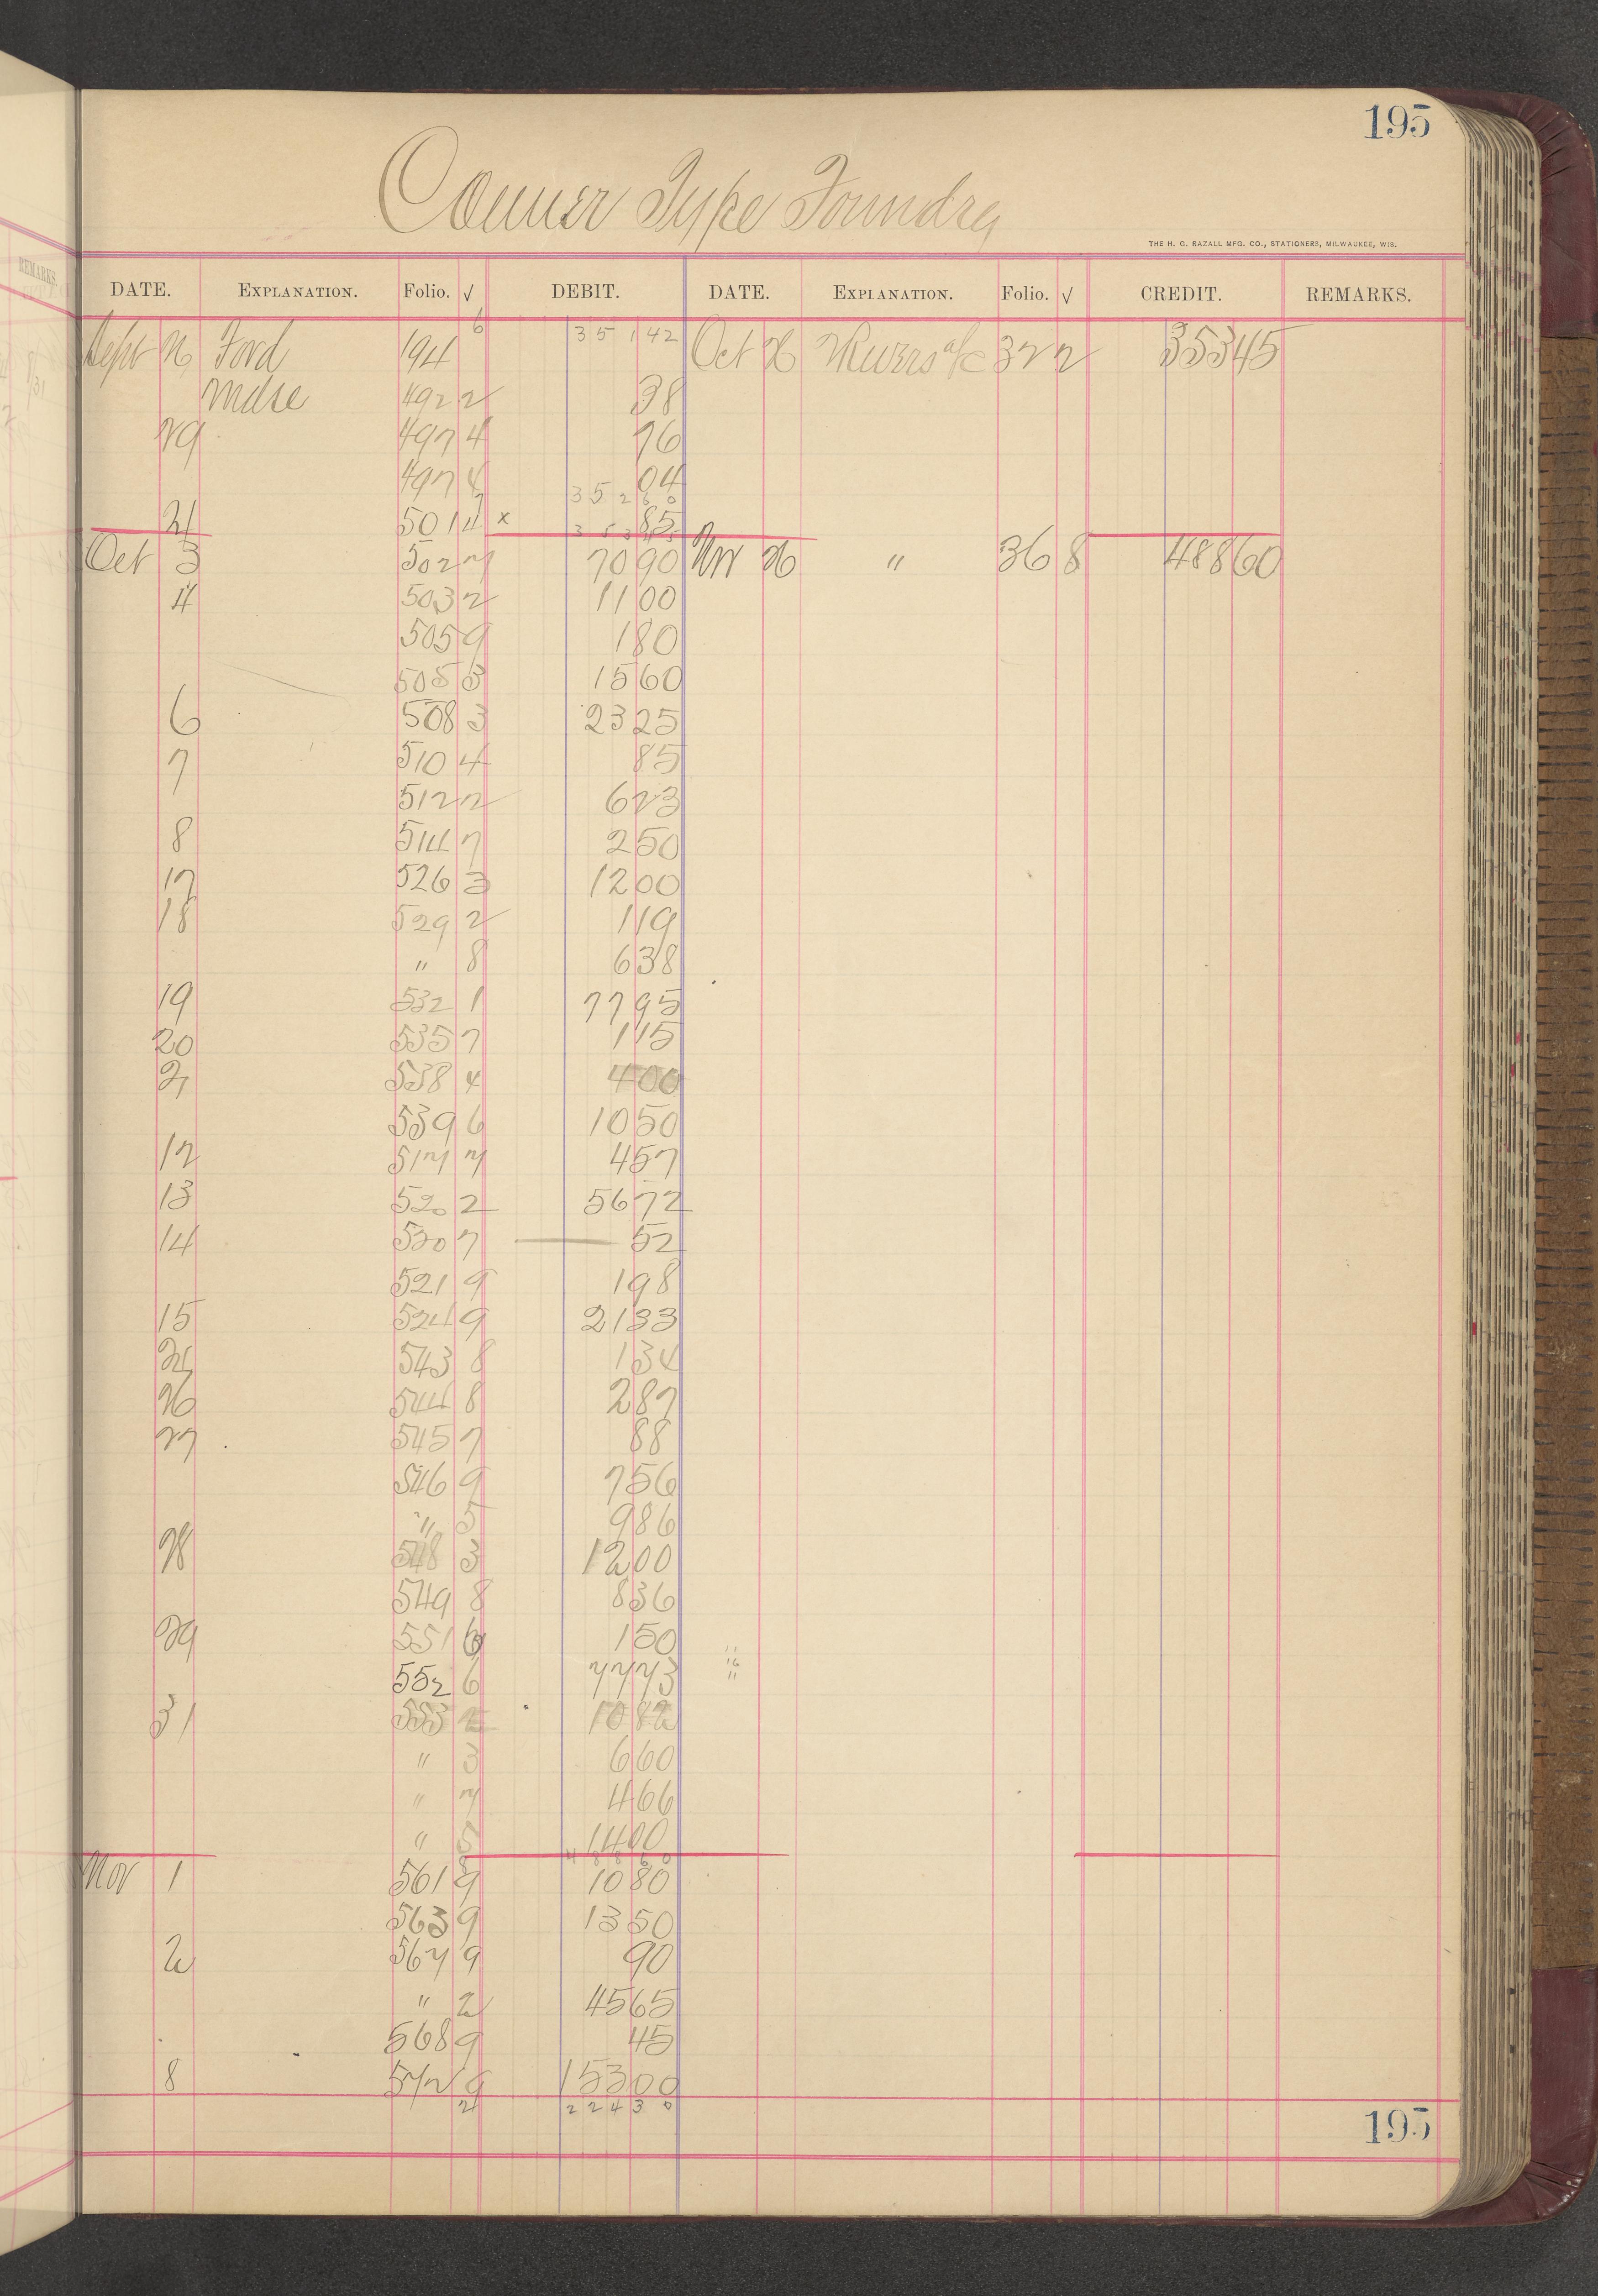 195
Conner Type Foundry
THE H. G. RAZALL MFG. CO., STATIONERS, MILWAUKEE, WIS.
DATE. EXPLANATION. Folio. √ DEBIT. DATE. EXPLANATION. Folio. √ CREDIT. REMARKS.
Sept 26 Ford 194 6 351 42 Oct 26 322 353 45
Mdse 492 2 38
29 497 4 76
497 4 04
352 60
501 4 x 85
353 45
Oct 3 502 7 70 90 Nov 26 " 36 8 488 60
4 503 2 11 00
505 9 1 80
505 3 15 60
6 508 3 23 25
7 510 4 85
512 2 6 23
8 514 7 2 50
17 526 3 12 00
18 529 2 1 19
" 8 6 38
19 532 1 77 95
20 535 7 1 15
21 538 4 4 00
539 6 10 50
12 517 7 4 57
13 520 2 56 72
14 520 7 52
521 9 1 98
15 524 9 21 33
24 543 8 1 34
26 544 8 2 87
27 545 7 88
546 9 7 56
" 5 9 86
28 548 3 12 00
549 8 8 36
29 551 6 1 50
552 6 77 73
31 553 10 82
" 3 6 60
" 7 4 66
" 5 14 00
488 60
Nov 1 561 9 10 80
563 9 13 50
2 567 9 90
" 2 45 65
568 9 45
8 572 9 153 00
21 224 30
195